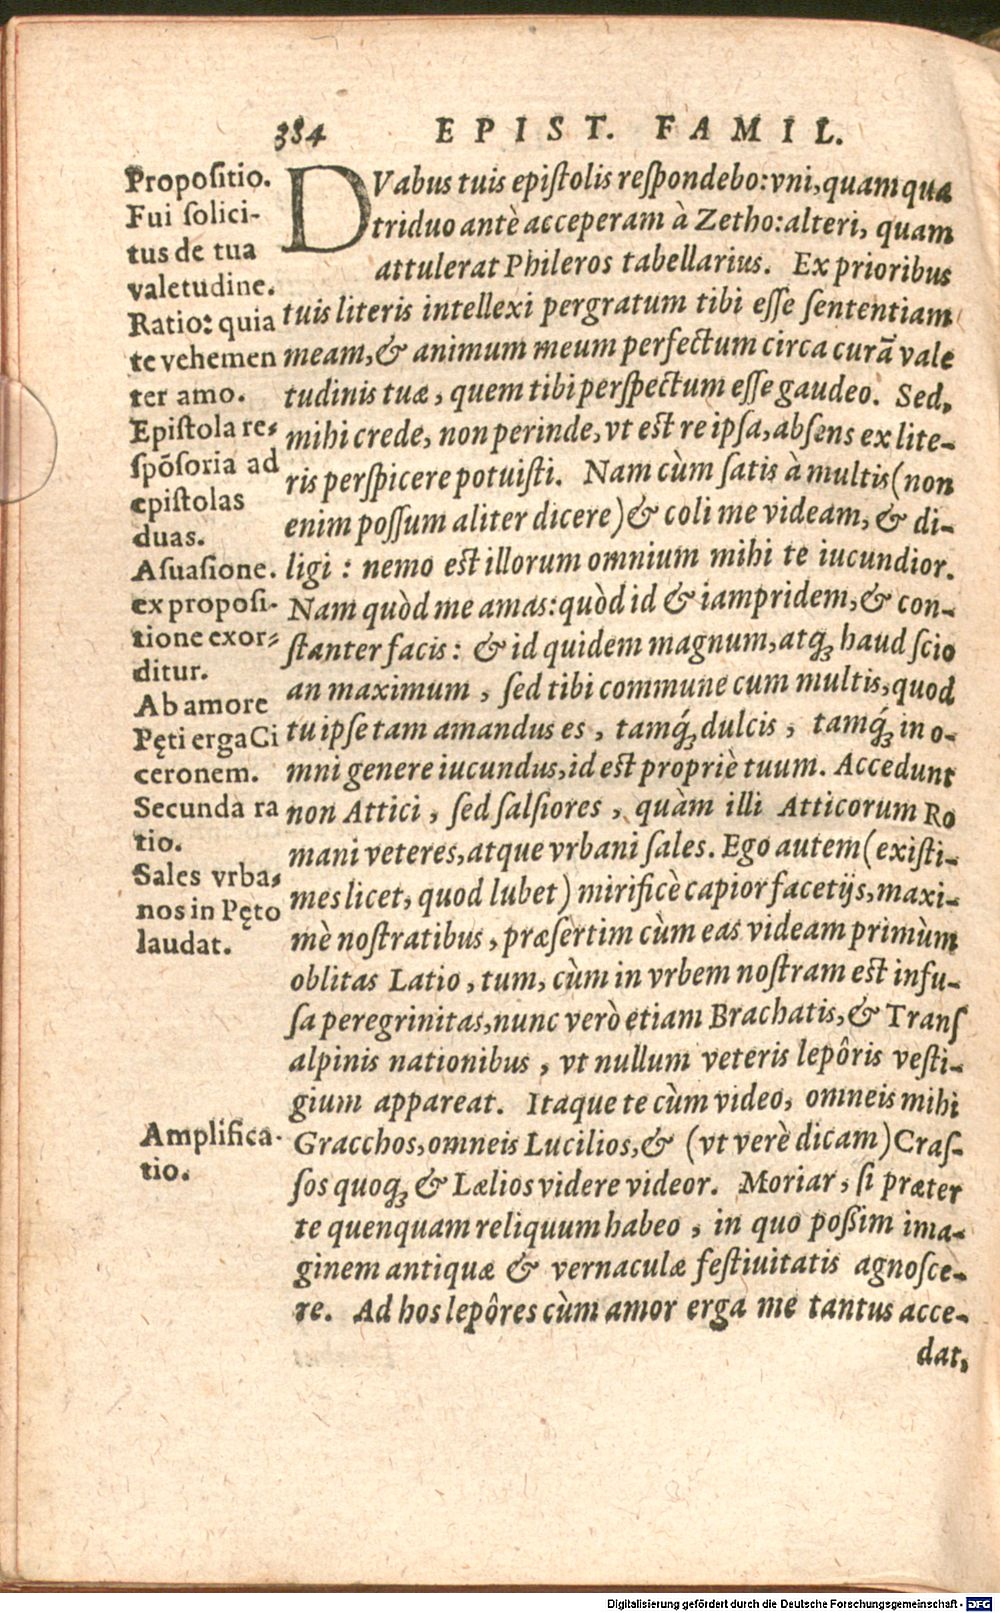 384 EPIST. FAMIL.
Propositio.
Fui solici-
tus de tua
valetudine.
Ratio: quia
te vehemen
ter amo.
Epistola re-
spõsoria ad
epistolas
duas.
Asuasione.
ex proposi-
tione exor-
ditur.
Ab amore
Pęti erga Ci
ceronem.
Secunda ra
tio.
Sales vrba-
nos in Pęto
laudat.
Amplifica-
tio.
DVabus tuis epistolis respondebo: vni, quam qua
triduo antè acceperam à Zetho: alteri, quam
attulerat Phileros tabellarius. Ex prioribus
tuis literis intellexi pergratum tibi esse sententiam
meam, & animum meum perfectum circa curã vale
tudinis tuæ, quem tibi perspectum esse gaudeo. Sed,
mihi crede, non perinde, vt est re ipsa, absens ex lite-
ris perspicere potuisti. Nam cùm satis à multis (non
enim possum aliter dicere) & coli me videam, & di-
ligi : nemo est illorum omnium mihi te iucundior.
Nam quòd me amas: quòd id & iampridem, & con-
stanter facis: & id quidem magnum, atq; haud scio
an maximum, sed tibi commune cum multis, quod
tu ipse tam amandus es, tamq́; dulcis, tamq́; in o-
mni genere iucundus, id est propriè tuum. Accedunt
non Attici, sed salsiores, quàm illi Atticorum Ro
mani veteres, atque vrbani sales. Ego autem (existi-
mes licet, quod lubet) mirificè capior facetijs, maxi-
mè nostratibus, præsertim cùm eas videam primùm
oblitas Latio, tum, cùm in vrbem nostram est infu-
sa peregrinitas, nunc verò etiam Brachatis, & Trans
alpinis nationibus, vt nullum veteris lepôris vesti-
gium appareat. Itaque te cùm video, omneis mihi
Gracchos, omneis Lucilios, & (vt verè dicam) Cras-
sos quoq; & Lælios videre videor. Moriar, si præter
te quenquam reliquum habeo, in quo possim ima-
ginem antiquæ & vernaculæ festiuitatis agnosce-
re. Ad hos lepôres cùm amor erga me tantus acce-
dat,
Digitalisierung gefördert durch die Deutsche Forschungsgemeinschaft - DFG